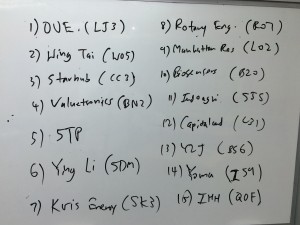 1) OUE. (LJ3)
2) Wing Tai (W05)
3) Starhub (CC3)
4) Valuetronics (BN2)
5) STP
6) Ying Li (5DM)
7) Kris Energy (SK3)
8) Rotary Eng. (R07)
9) Manhattan Res (L02)
10) Biosensors (B20)
11) Indoagri (5JS)
12) Capitaland (C31)
13) YZJ (BS6)
14) Yoma (IS9)
15) IHH (Q0F)